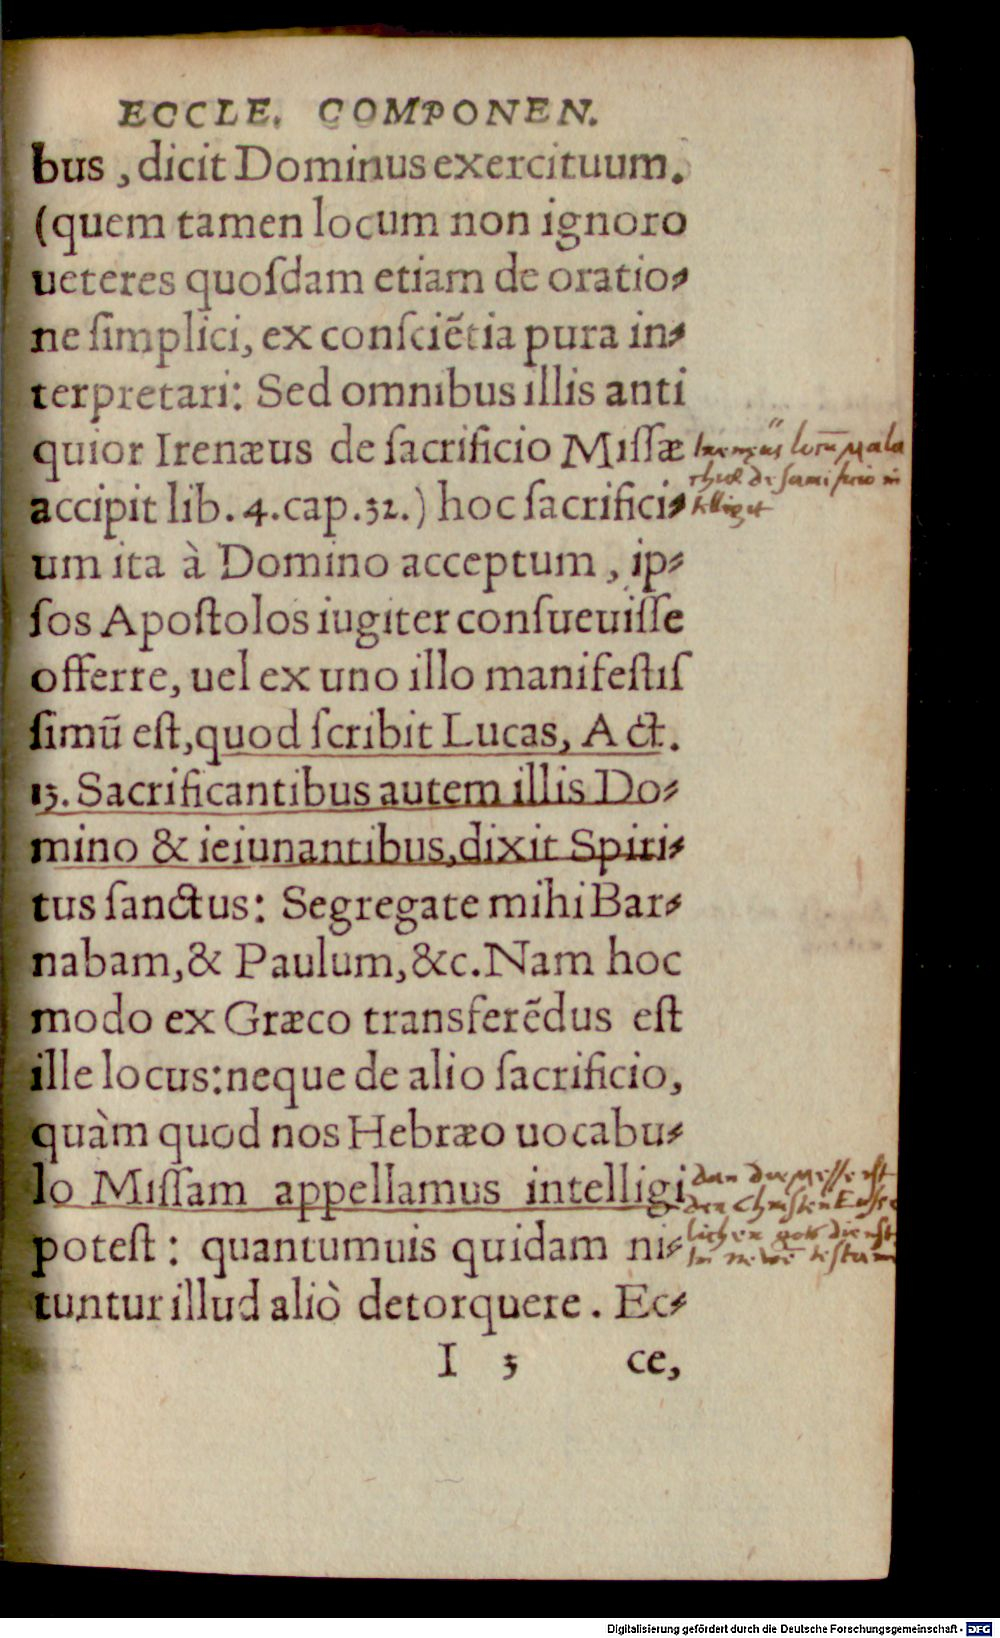 ECCLE. COMPONEN.
bus, dicit Dominus exercituum.
(quem tamen locum non ignoro
ueteres quoſdam etiam de oratio-
ne ſimplici, ex conſciẽtia pura in-
terpretari: Sed omnibus illis anti
quior Irenæus de ſacrificio Miſſæ
accipit lib. 4. cap. 32.) hoc ſacrifici-
um ita à Domino acceptum, ip-
ſos Apoſtolos iugiter conſueuiſſe
offerre, uel ex uno illo manifeſtiſ
ſimũ eſt, quod ſcribit Lucas, Act.
13. Sacrificantibus autem illis Do-
mino & ieiunantibus, dixit Spiri-
tus ſanctus: Segregate mihi Bar-
nabam, & Paulum, &c. Nam hoc
modo ex Græco transferẽdus eſt
ille locus: neque de alio ſacrificio,
quàm quod nos Hebræo uocabu-
lo Miſſam appellamus intelligi
poteſt: quantumuis quidam ni-
tuntur illud aliò detorquere. Ec-
I 3 ce,
locũ Mala
intelliget
dan die Messe ist
der Christen
gots dienst
Im testam
Digitalisierung gefördert durch die Deutsche Forschungsgemeinschaft - DFG